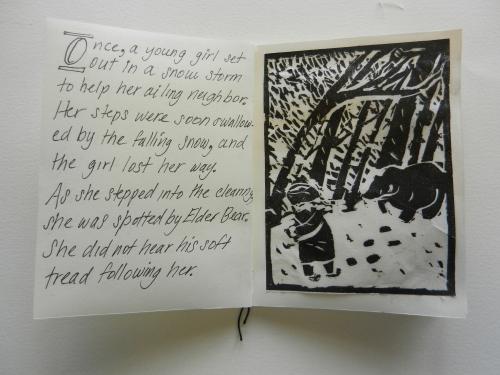 Once, a young girl set
out in a snow storm
to help her ailing neighbor.
Her steps were soon swallow-
ed by the falling snow, and
the girl lost her way.
As she stepped into the clearing
she was spotted by Elder Bear.
She did not hear his soft
tread following her.